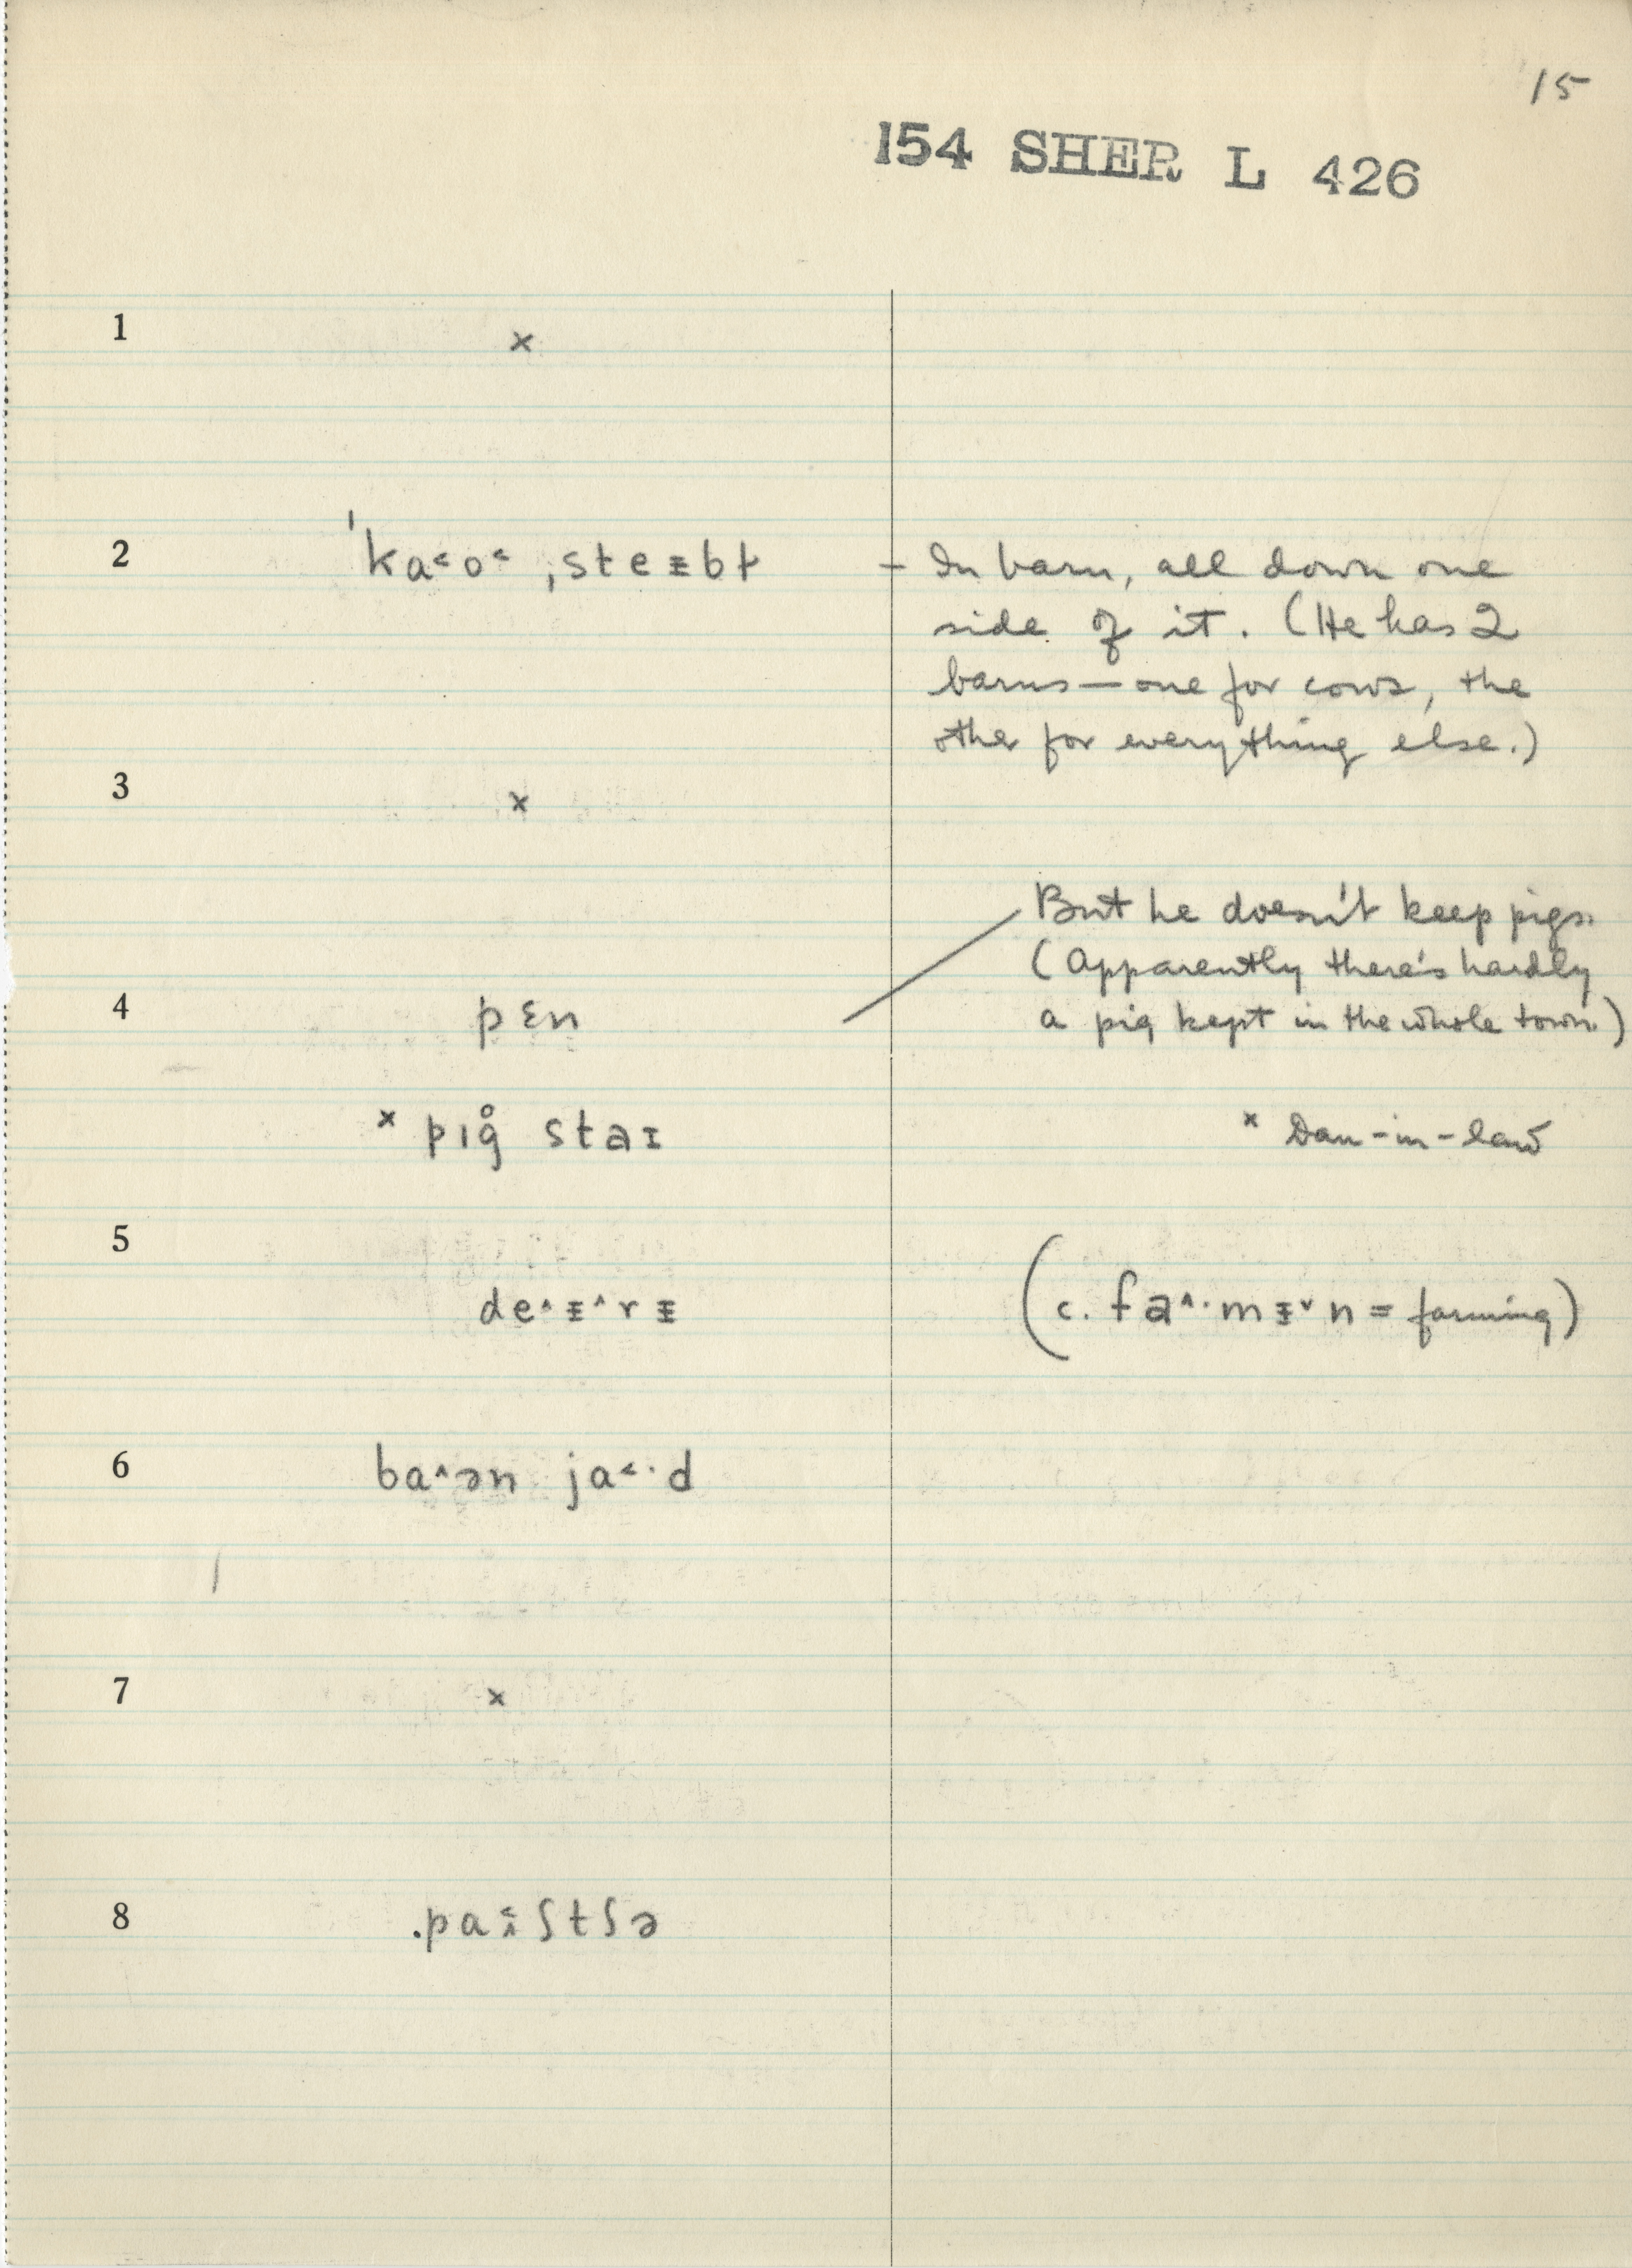 15
154 SHER L 426
1 ×
2 ˈka˂o˂ ˌsteᵻbɫ – In barn, all down one
side of it. (He has 2
barns—one for cows, the
other for everything else.)
3 ×
But he doesn't keep pigs.
(Apparently there's hardly
4 pɛn a pig kept in the whole town.)
× pɪg̊ staɪ × Dau-in-law
5
de˄ᵻ˄rᵻ (c. fa˄·mᵻ˅n = farming)
6 ba˄ən ja˂·d
7 ×
8 ʃtʃə